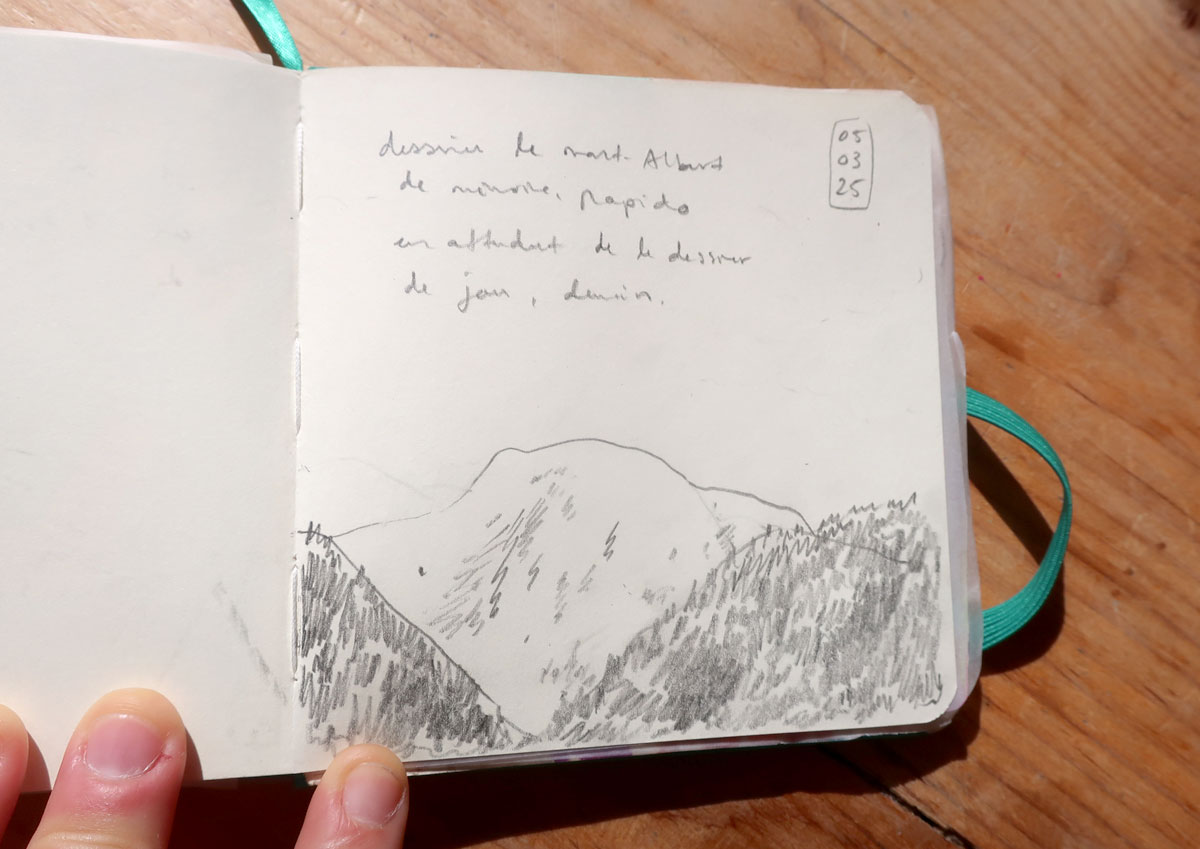 dessiner le mont Albert
de mémoire, rapido
en attendant de le dessiner
de jour, demain.
05
03
25